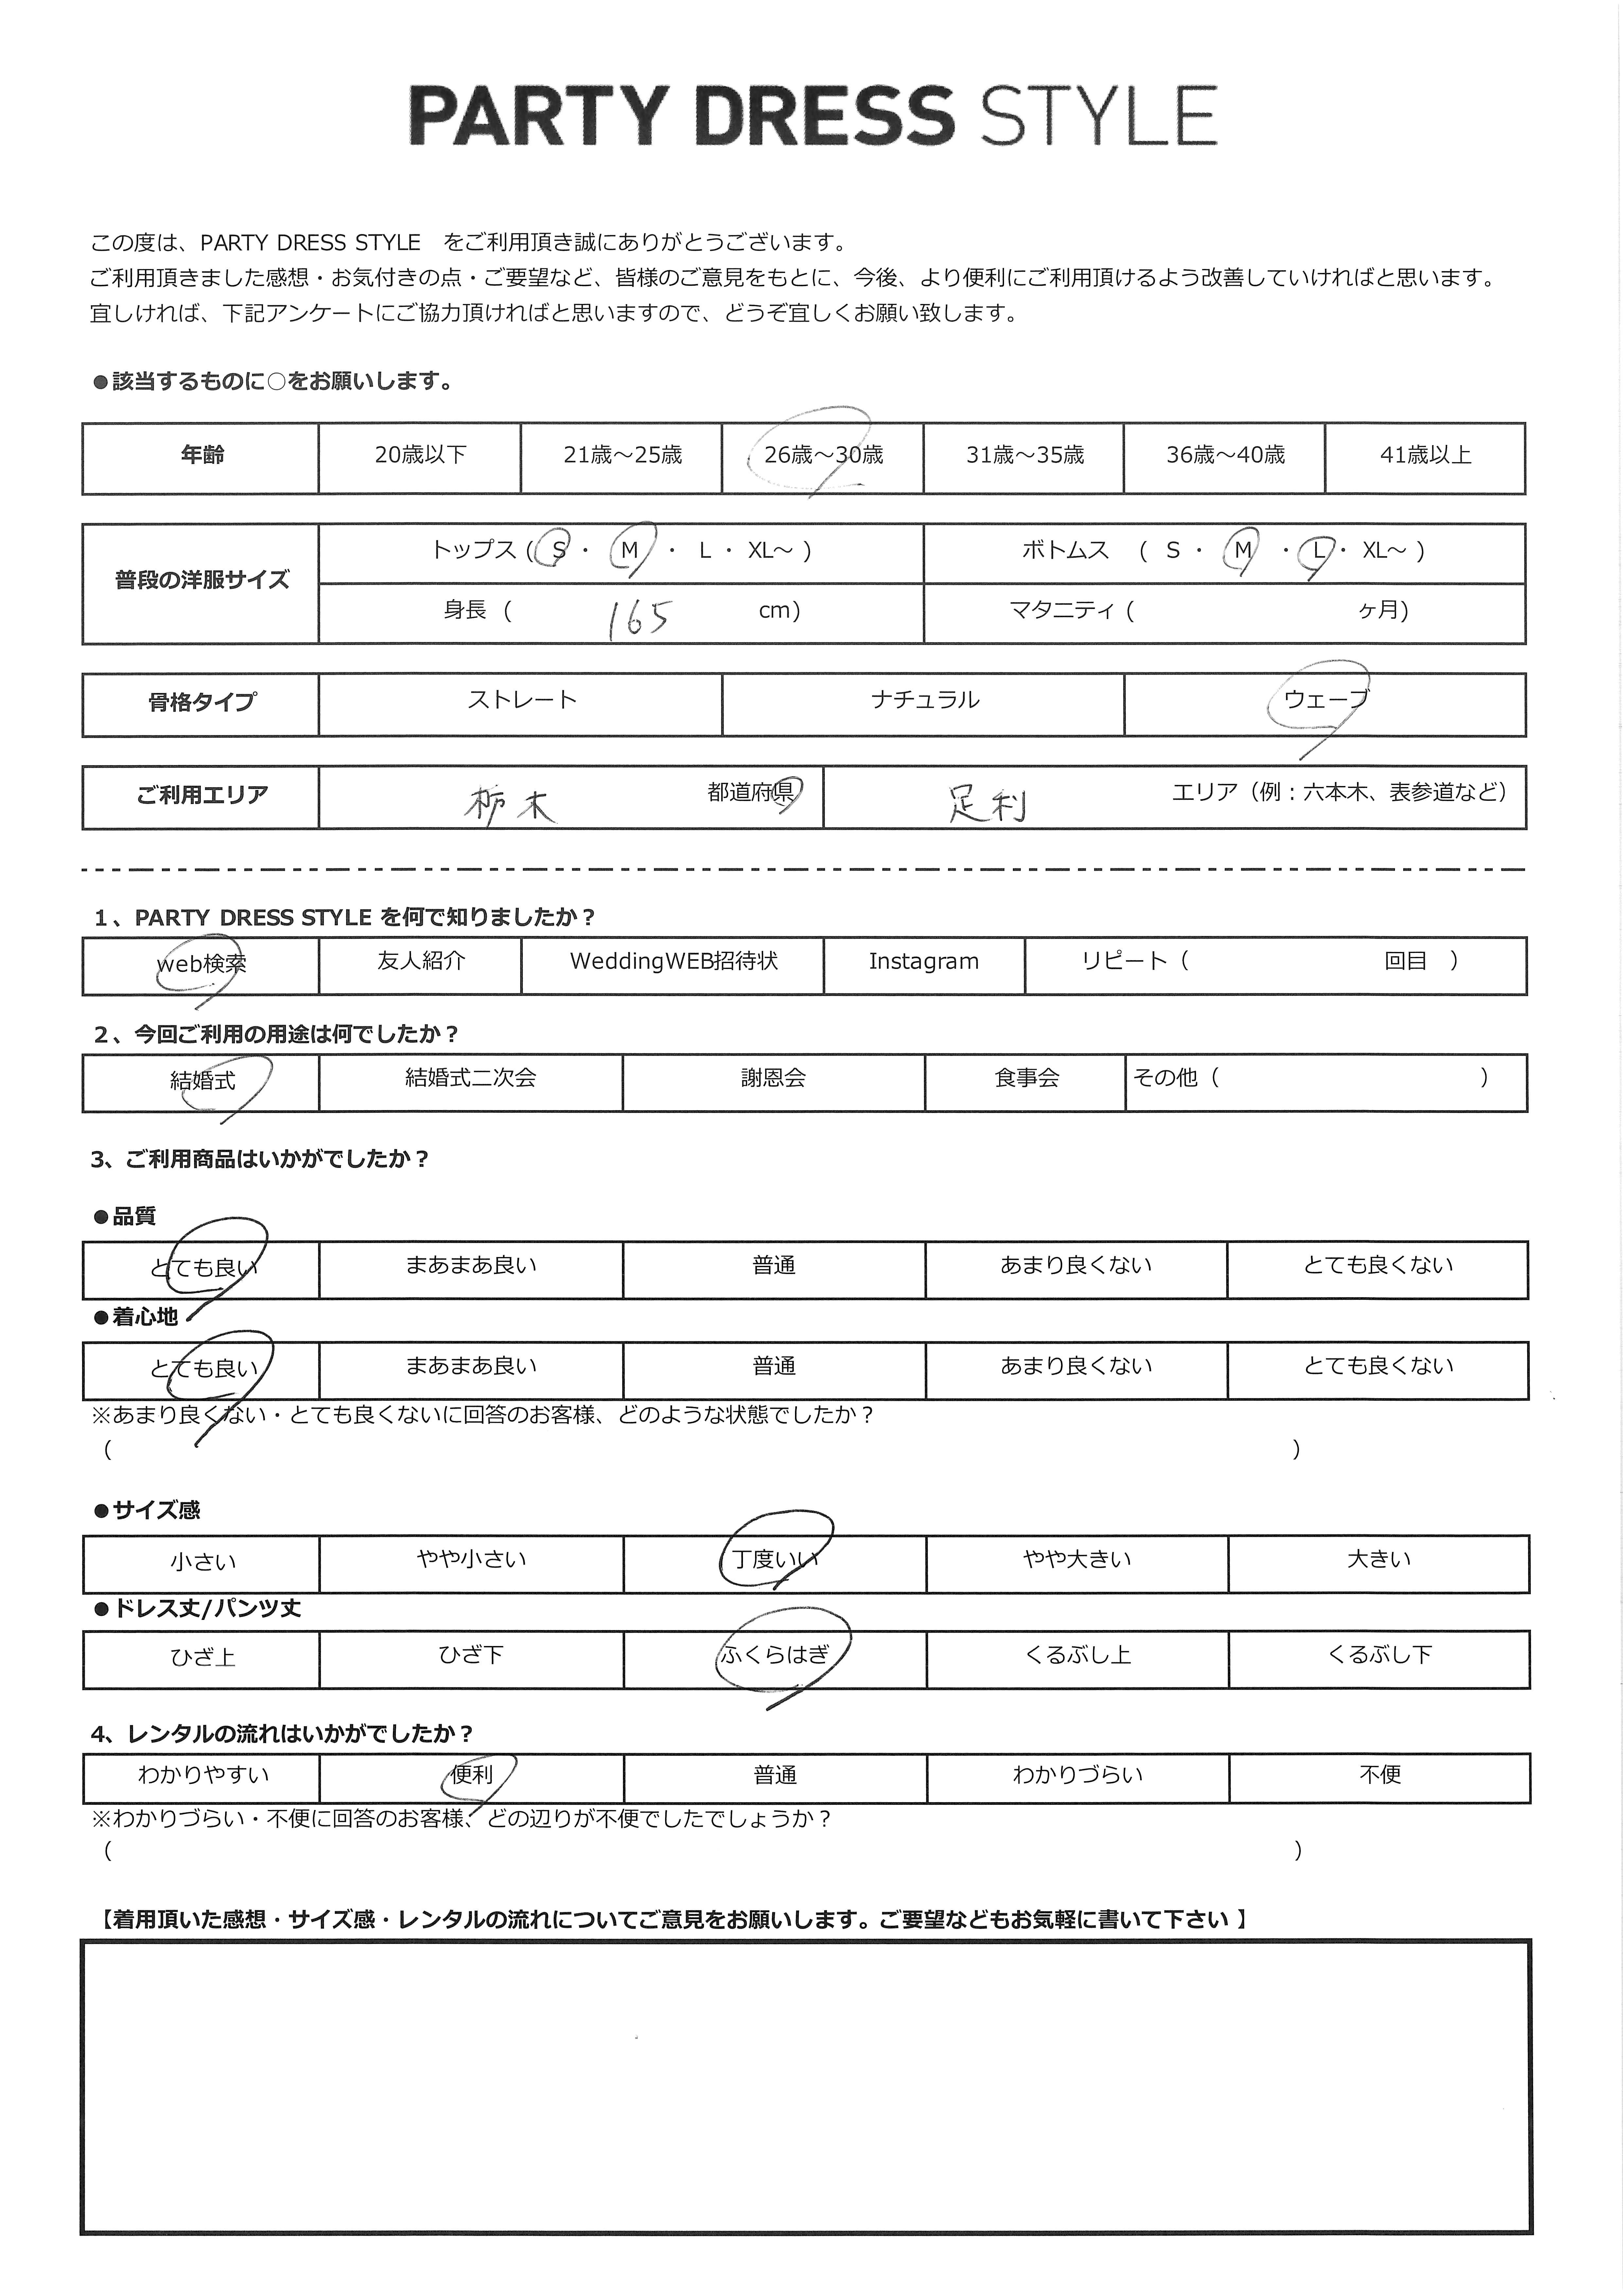 PARTY DRESS STYLE
この度は、PARTY DRESS STYLE　をご利用頂き誠にありがとうございます。
ご利用頂きました感想・お気付きの点・ご要望など、皆様のご意見をもとに、今後、より便利にご利用頂けるよう改善していければと思います。
宜しければ、下記アンケートにご協力頂ければと思いますので、どうぞ宜しくお願い致します。
●該当するものに○をお願いします。
年齢 20歳以下 21歳～25歳 26歳～30歳 31歳～35歳 36歳～40歳 41歳以上
普段の洋服サイズ トップス ( S ・ M ・ L ・ XL～ ) ボトムス ( S ・ M ・ L ・ XL～ )
身長 ( 165 cm) マタニティ ( ヶ月)
骨格タイプ ストレート ナチュラル ウェーブ
ご利用エリア 栃木 都道府県 足利 エリア（例：六本木、表参道など）
1、PARTY DRESS STYLE を何で知りましたか？
web検索 友人紹介 WeddingWEB招待状 Instagram リピート（ 回目 ）
2、今回ご利用の用途は何でしたか？
結婚式 結婚式二次会 謝恩会 食事会 その他（ ）
3、ご利用商品はいかがでしたか？
●品質
とても良い まあまあ良い 普通 あまり良くない とても良くない
●着心地
とても良い まあまあ良い 普通 あまり良くない とても良くない
※あまり良くない・とても良くないに回答のお客様、どのような状態でしたか？
（ ）
●サイズ感
小さい やや小さい 丁度いい やや大きい 大きい
●ドレス丈/パンツ丈
ひざ上 ひざ下 ふくらはぎ くるぶし上 くるぶし下
4、レンタルの流れはいかがでしたか？
わかりやすい 便利 普通 わかりづらい 不便
※わかりづらい・不便に回答のお客様、どの辺りが不便でしたでしょうか？
（ ）
【着用頂いた感想・サイズ感・レンタルの流れについてご意見をお願いします。ご要望などもお気軽に書いて下さい 】